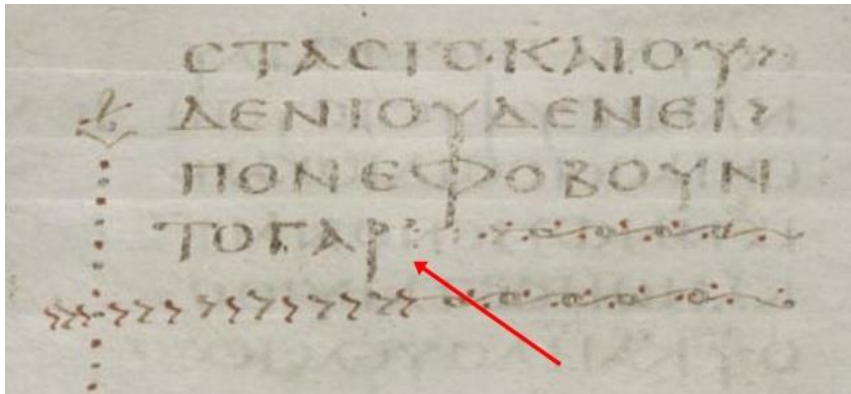 ϹΤΑϹΙϹ·ΚΑΙΟΥ›
ΔΕΝΙΟΥΔΕΝΕΙ›
ΠΟΝΕΦΟΒΟΥΝ
ΤΟΓΑΡ: